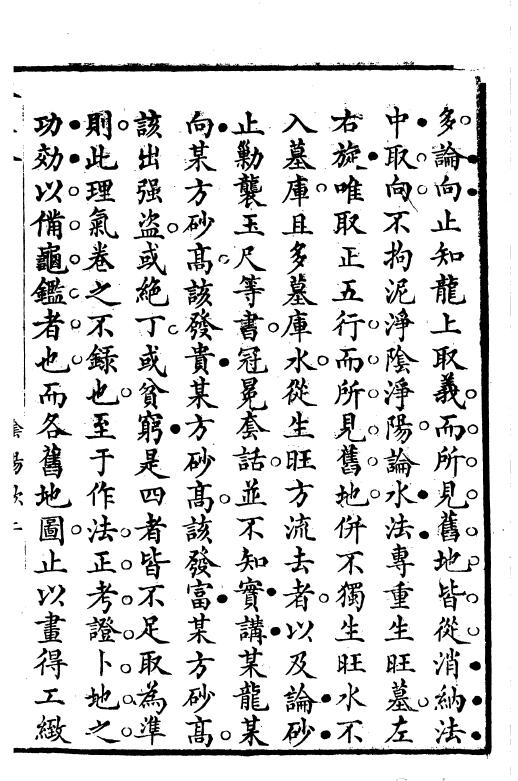 多論向止知龍上取義而所見舊地皆從消納法
中取向不拘泥淨陰淨陽論水法專重生旺墓左
右旋唯取正五行而所見舊地併不獨生旺水不
入墓庫且多墓庫水從生旺方流去者以及論砂
止勦襲玉尺等書冠冕套話並不知實講某龍某
向某方砂高該發貴某方砂高該發富某方砂高
該出强盗或絶丁或貧窮是四者皆不足取為準
則此理氣卷之不録也至于作法正考證卜地之
功效以備龜鑑者也而各舊地圖止以畫得工緻